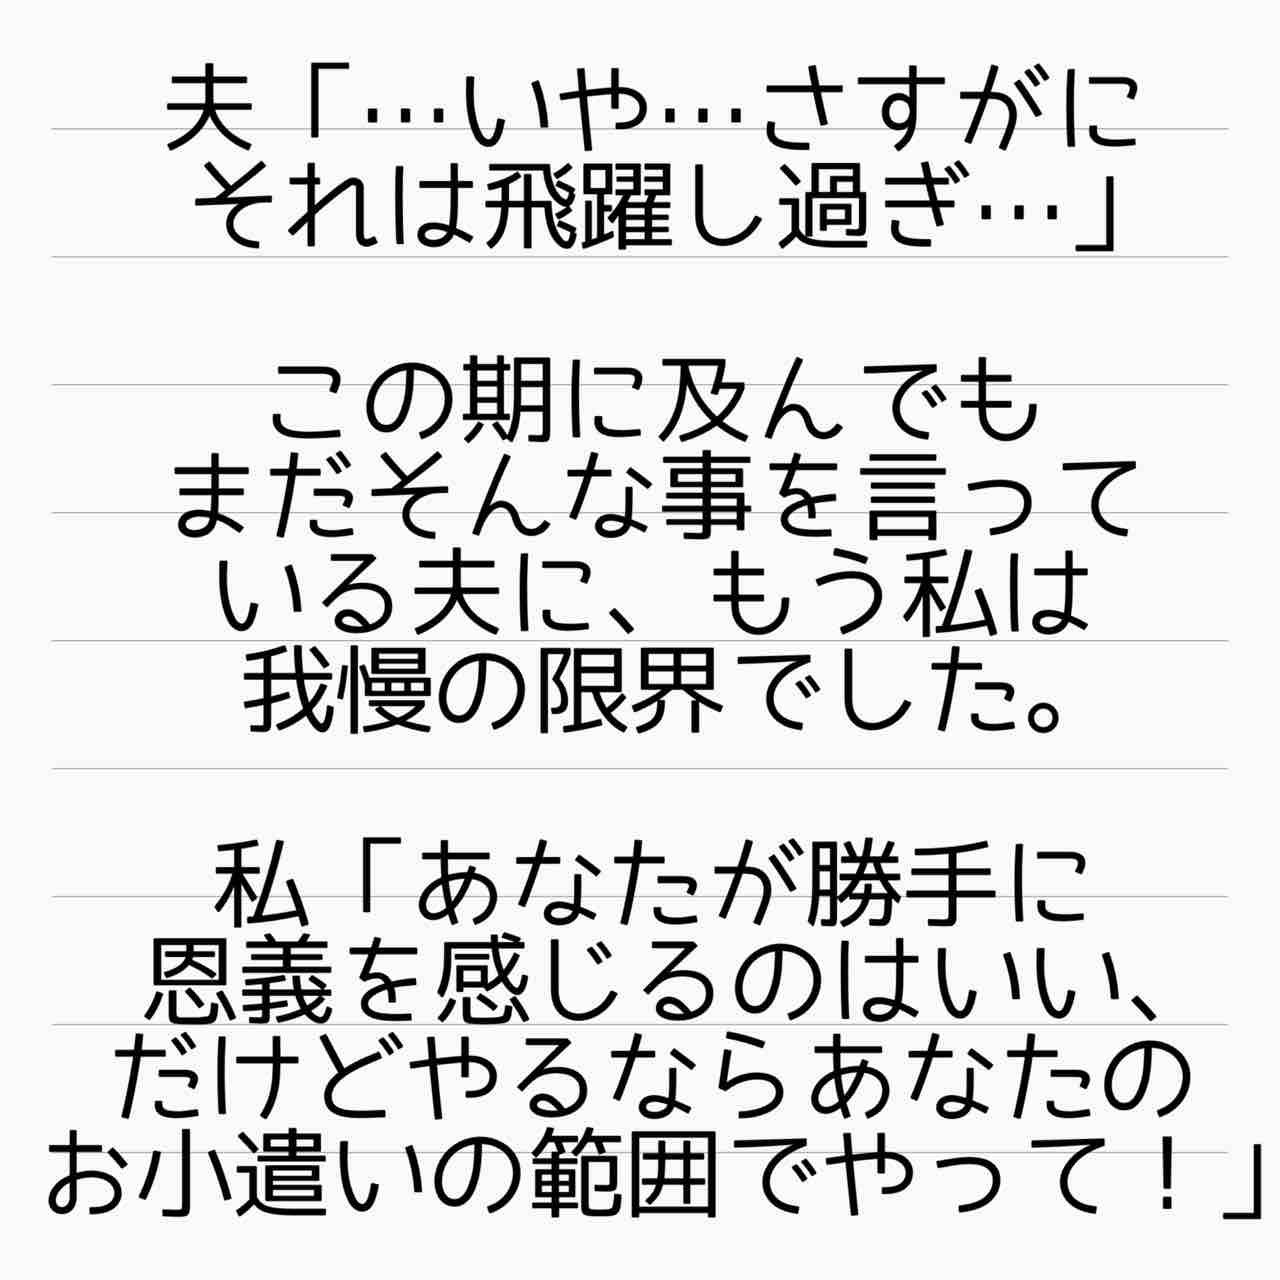 夫「…いや…さすがに
それは飛躍し過ぎ…」
この期に及んでも
まだそんな事を言って
いる夫に、もう私は
我慢の限界でした。
私「あなたが勝手に
恩義を感じるのはいい、
だけどやるならあなたの
お小遣いの範囲でやって！」